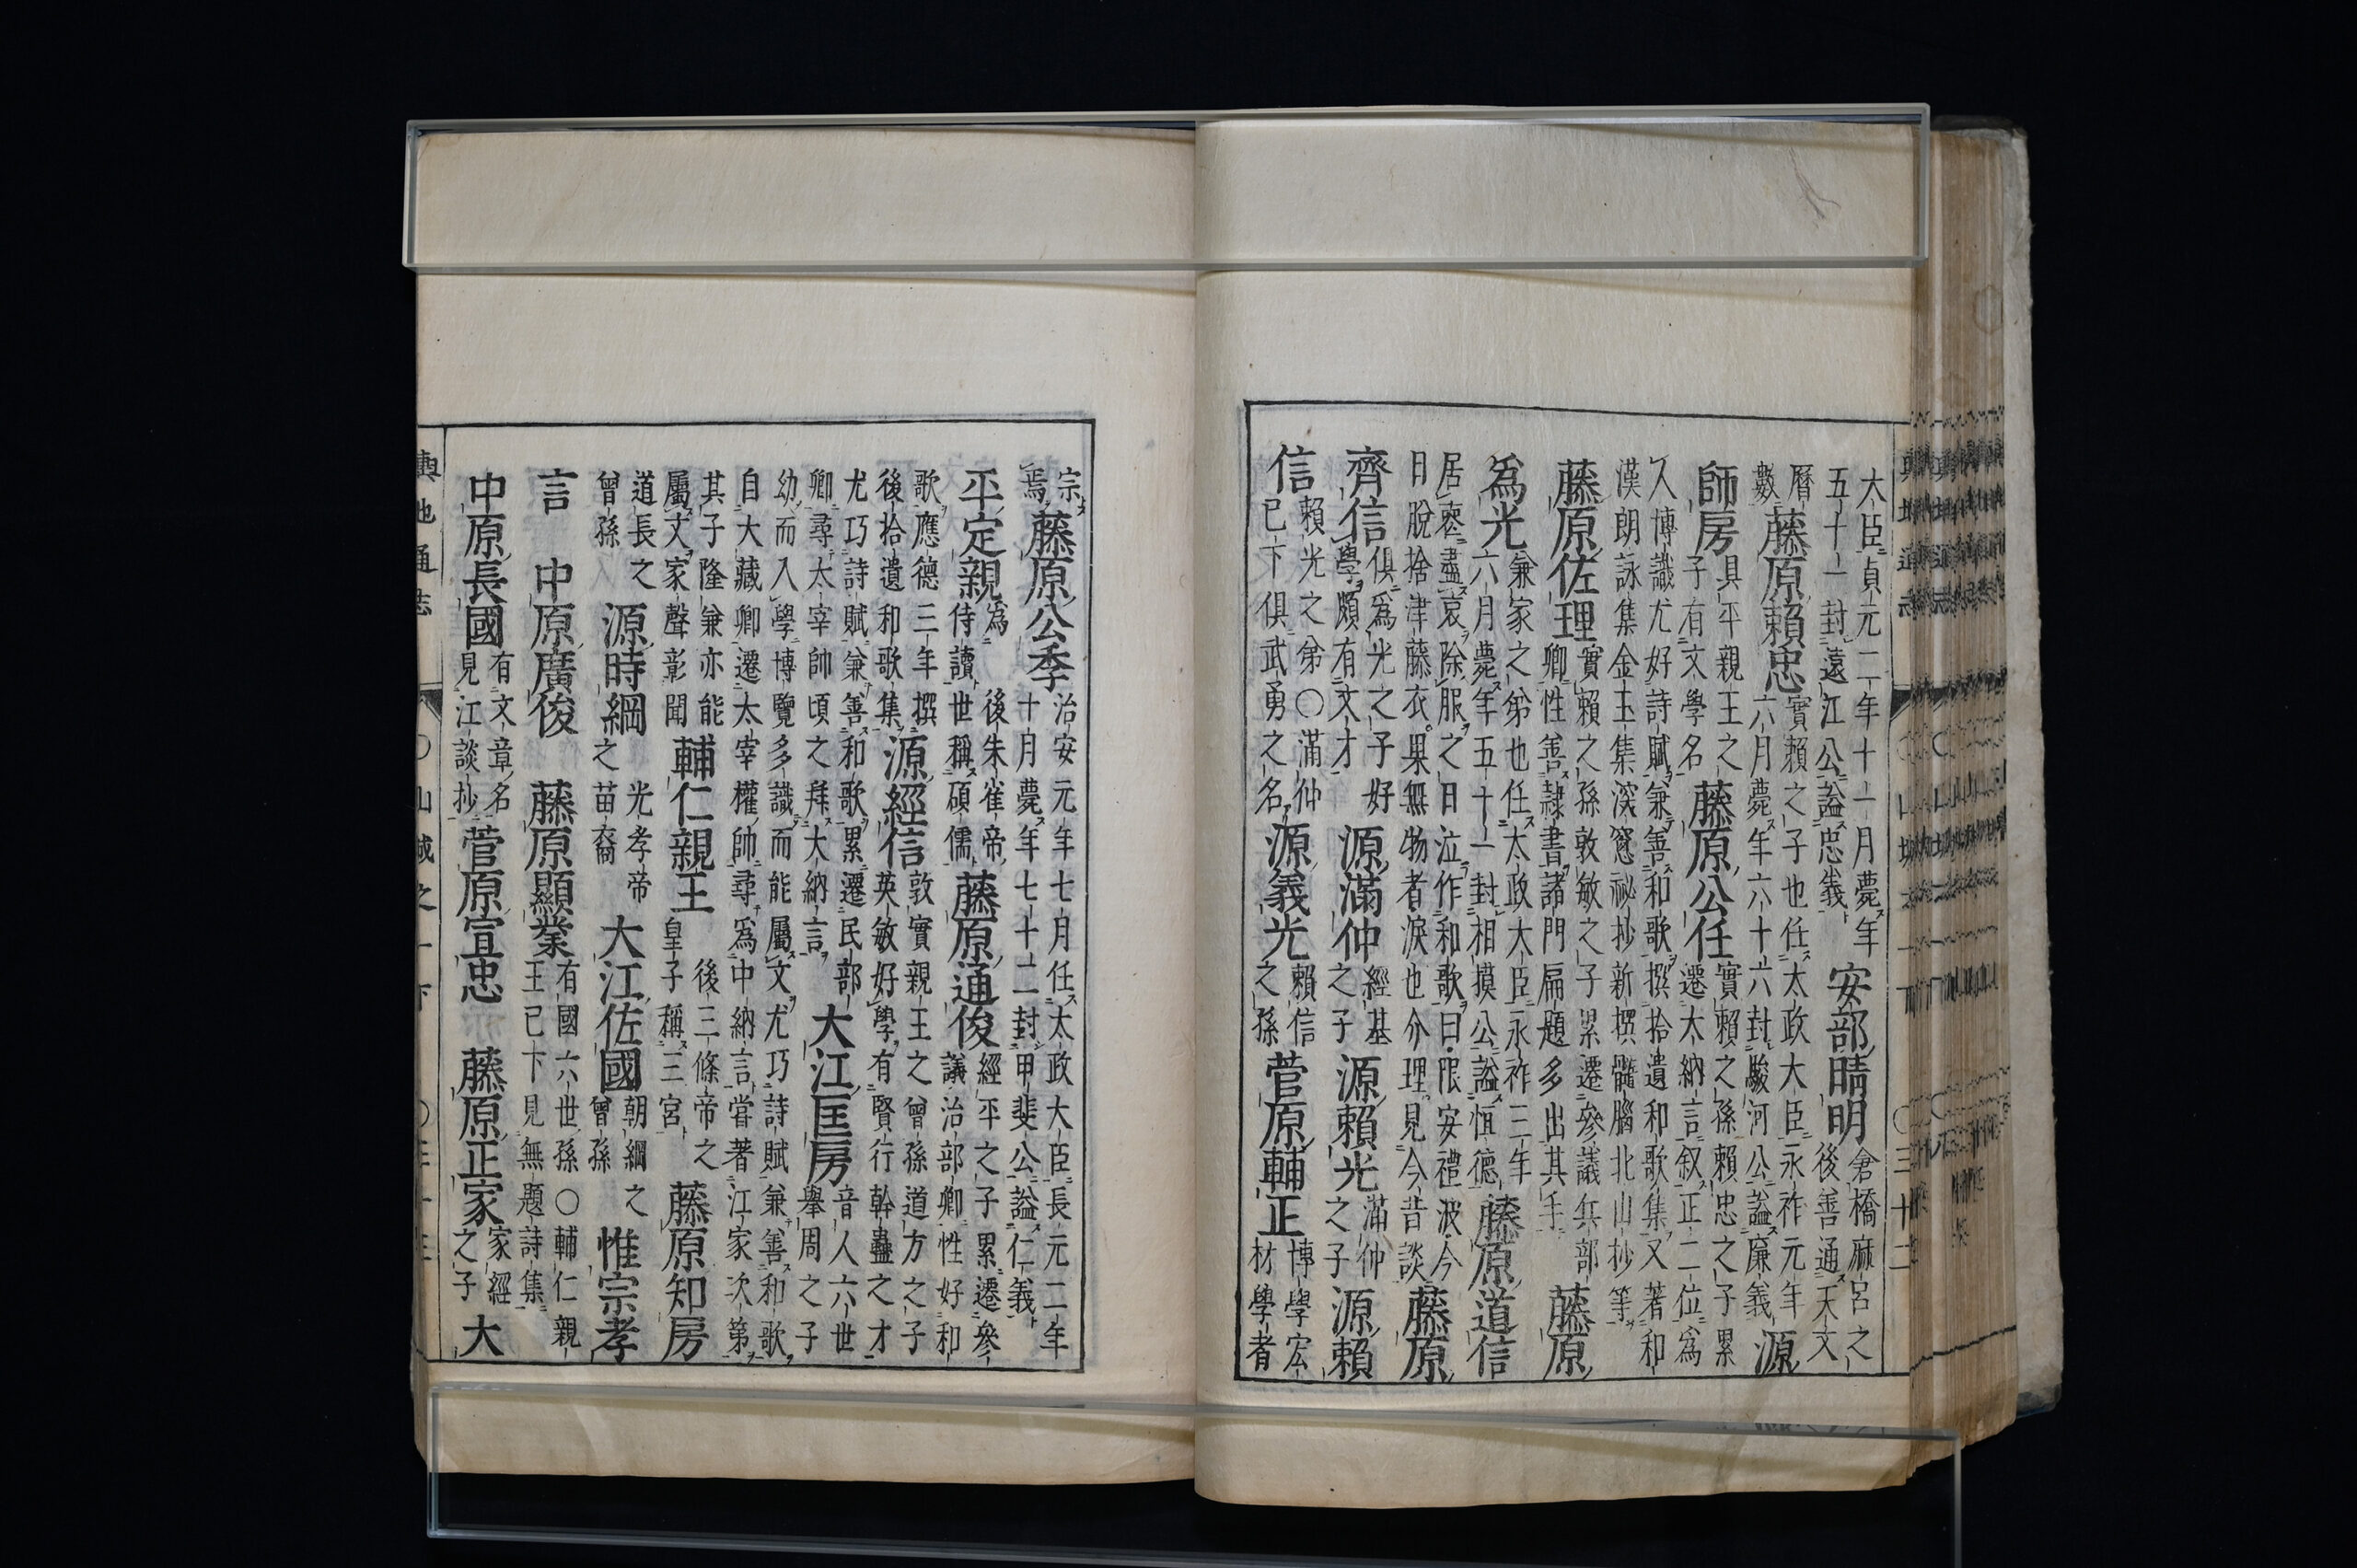 大臣貞元二年十一月薨年
五十一封遠江公謚忠義
安部晴明
倉橋麻呂之
後善通天文
暦
數
藤原頼忠
實頼之子也任太政大臣永祚元年
六月薨年六十六封駿河公謚廉義
源
師房
具平親王之
子有文學名
藤原公任
實頼之孫頼忠之子累
遷大納言叙正二位爲
人博識尤好詩賦兼善和歌撰拾遺和歌集又著和
漢朗詠集金玉集深窓祕抄新撰髓腦北山抄等
藤原佐理
實頼之孫敦敏之子累遷參議兵部
卿性善隷書諸門扁題多出其手
藤原
爲光
兼家之弟也任太政大臣永祚三年
六月薨年五十一封相摸公謚恒德
藤原道信
居喪盡哀除服之日泣作和歌曰限安禮波今
日脱捨津藤衣果無物者淚也介理見今昔談
藤原
齊信
俱爲光之子好
學頗有文才
源滿仲
經基
之子
源頼光
滿仲
之子
源頼
信
頼光之弟〇滿仲
已下俱武勇之名
源義光
頼信
之孫
菅原輔正
博學宏
材學者
宗
焉
藤原公季
治安元年七月任太政大臣長元二年
十月薨年七十二封甲斐公謚仁義
平定親
爲後朱雀帝
侍讀世稱碩儒
藤原通俊
經平之子累遷參
議治部卿性好和
歌應德三年撰
後拾遺和歌集
源經信
敦實親王之曾孫道方之子
英敏好學有賢行幹蠱之才
尤巧詩賦兼善和歌累遷民部
卿尋太宰帥頃之拜大納言
大江匡房
音人六世
舉周之子
幼而入學博覽多識而能屬文尤巧詩賦兼善和歌
自大藏卿遷太宰權帥尋爲中納言嘗著江家次第
其子隆兼亦能
屬文家聲彰聞
輔仁親王
後三條帝之
皇子稱三宮
藤原知房
道長之
曾孫
源時綱
光孝帝
之苗裔
大江佐國
朝綱之
曾孫
惟宗孝
言
中原廣俊
藤原顯業
有國六世孫〇輔仁親
王已下見無題詩集
中原長國
有文章名
見江談抄
菅原宣忠
藤原正家
家經
之子
大
輿地通志
〇山城之十下